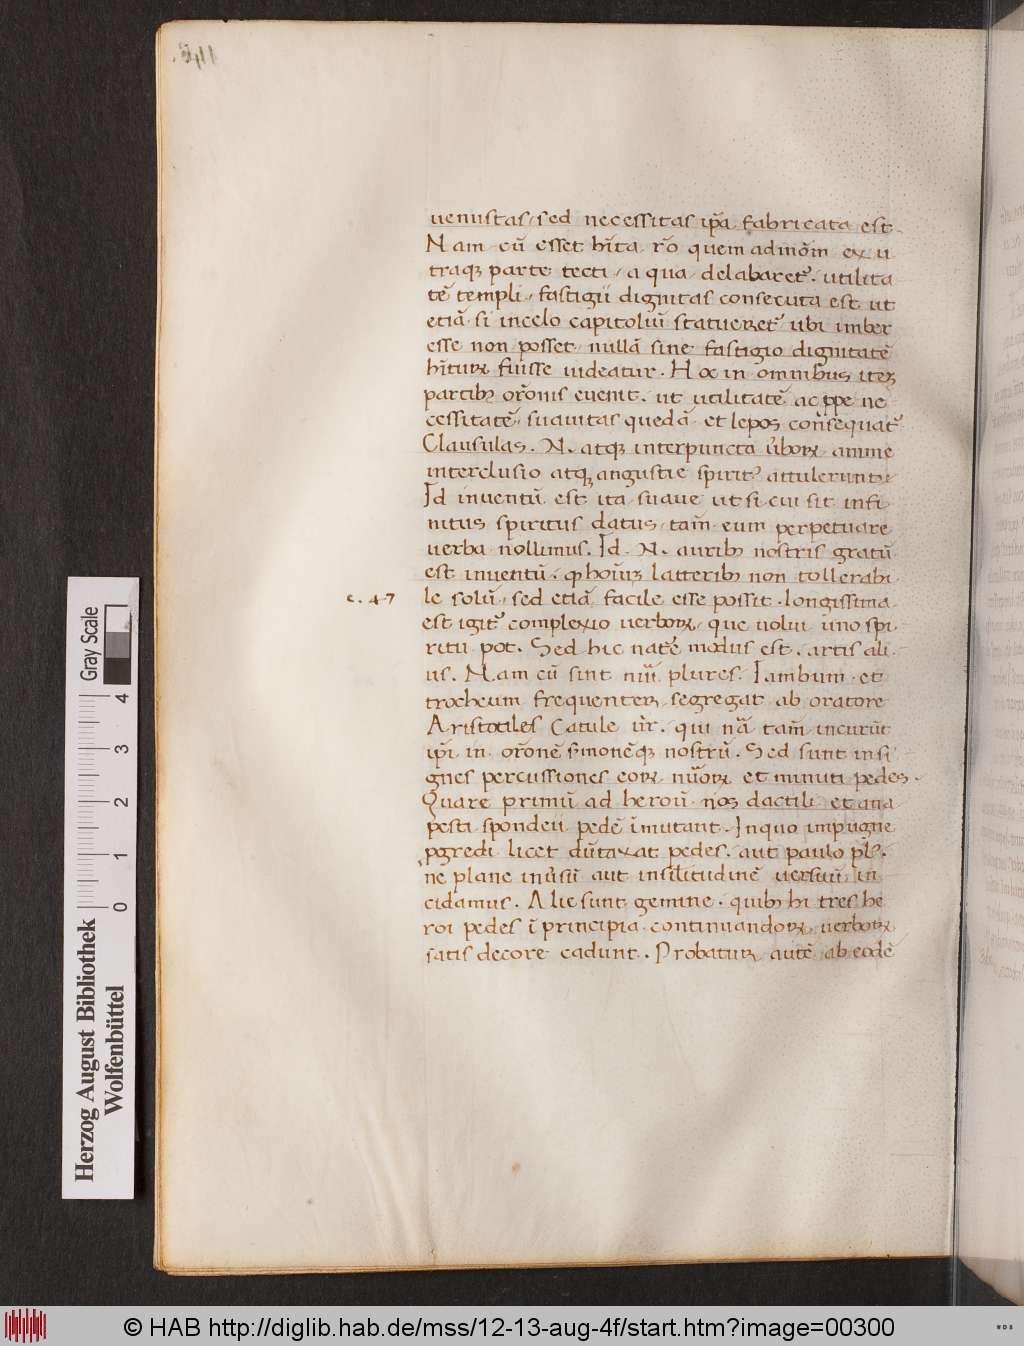 uenustas, sed necessitas ip̃a fabricata est.
Nam cũ esset hĩta rõ quem admõm ex u
traqꝫ parte tecti, aqua delabaretᷣ. utilita
tẽ templi, fastigii dignitas consecuta est ut
etiã si incelo capitoliũ statueretᷣ ubi imber
esse non posset nullã sine fastigio dignitatẽ
hĩturꝫ fuisse uideatur. Hoc in omnibus itẽ
partibꝫ orõnis euenit. ut utilitatẽ ac ꝓpe ne
cessitatẽ, suauitas quedã et lepos cõnsequatᷣ
Clausulas. N. atqꝫ interpuncta ũboꝝ anime
interclusio atqꝫ angustie spiritᷣ attulerunt.
Id inuentũ est ita suaue ut si cui sit infi
nitus spiritus datus, tam̃ eum perpetuare
uerba nollimus. Id. N. auribꝫ nostris gratũ
est inuentũ. qđ hoı̃uꝫ latteribꝫ non tollerabi
c. 47
le solũ, sed etiã facile esse possit. longissima
est igitᷣ complexio uerboꝝ, que uolui uno spi
ritu pot. Sed hic natᷓe modus est. artis ali
us. Nam cũ sint nũı plures. Iambum et
trocheum frequentem segregat ab oratore
Aristotiles Catule ũr. qui nᷓa tam̃ incurũt
ip̃i in orõnẽ sᷓmonẽqꝫ nostrũ. Sed sunt insi
gnes percussiones eoꝝ nũ̃oꝝ et minuti pedes.
Quare primũ ad heroũ nos dactili et ana
pesti spondeii pedẽ ĩmutant. Inquo impugne
ꝓgredi licet dũtaxat pedes. aut paulo plᷣs.
ne plane inũsũ aut insilitudinẽ uersuũ in
cidamus. Alie sunt gemine. quibꝫ hi tres he
roi pedes ĩ principia continuandoꝝ uerboꝝ
satis decore cadunt. Probatur autẽ ab eodẽ
Herzog August Bibliothek
Wolfenbüttel
Gray Scale
0 1 2 3 4
© HAB http://diglib.hab.de/mss/12-13-aug-4f/start.htm?image=00300